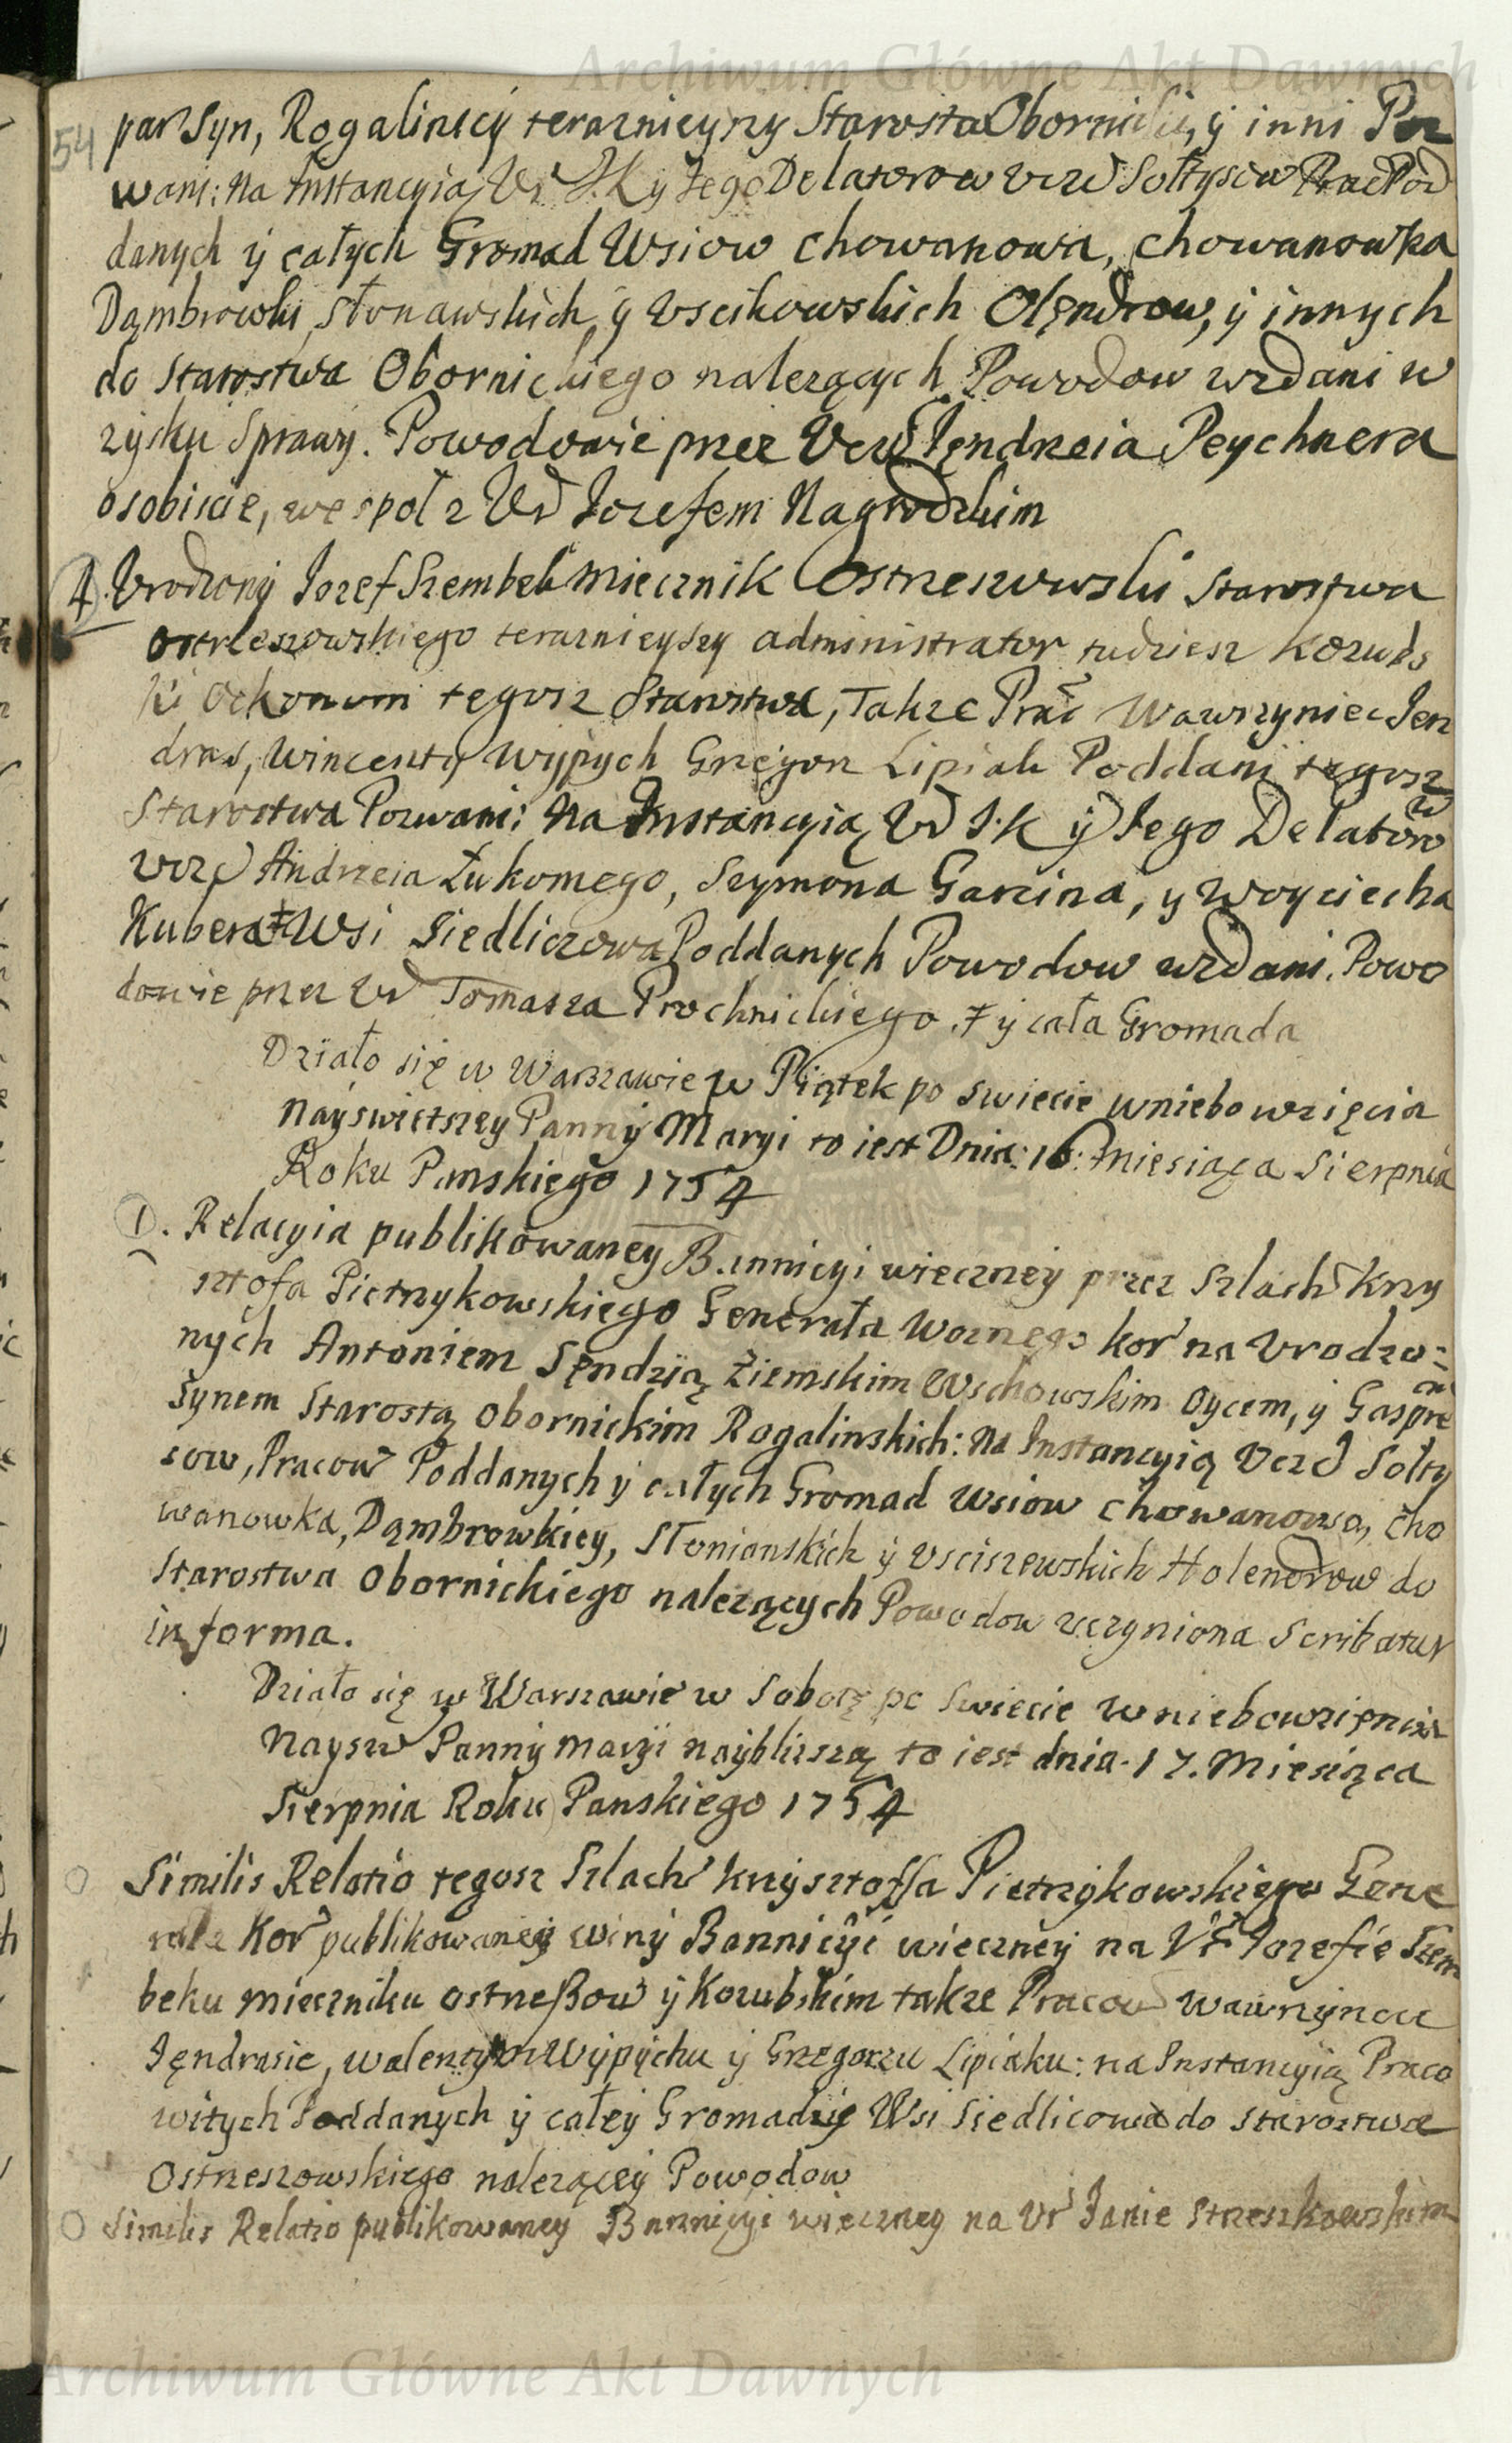 Archiwum Główne Akt Dawnych
54
par Syn, Rogalinscy teraznieyszy Starosta Obornicki, y inni Poz
wani: Na Instancyią Ur J. K y Jego Delatorow Ucz Sołtysow Prac Pod
danych ÿ całych Gromad Wsiow Chowanowa, Chowanowka
Dąmbrowki, Słonawskich, ÿ Uscikowskich Olęndrow, ÿ innych
do Starostwa Obornickiego nalezących Powodow wzdani w
zysku Sprawy. Powodowie przez Ucz Jęndrzeia Peychnera
osobiscie, wespoł z Ur Jozefem Nagrodzkim
4. Urodzony Jozef Szembek Miecznik Ostrzeszowski Starostwa
Ostrzeszowskiego teraznieyszy administrator tudziesz Kozubs
ki Oekonom tegosz Starostwa, Takze Prac Wawrzyniec Jen
dras, Wincenty Wypych Grzegorz Lipiak Poddani tegosz
Starostwa Pozwani: Na Instancyią Ur J. K ÿ Jego Delatorow
Ucz Andrzeia Łukomego, Szymona Garcina, y Woyciecha
Kubera ŦWsi Siedliczowa Poddanych Powodow wzdani. Powo
dowie przez Ur Tomasza Prochnickiego. Ŧ ÿ cała Gromada
Działo się w Warszawie w Piątek po Swiecie wniebowzięcia
Nayswiętszey Panny Maryi to iest Dnia: 16: Miesiąca Sierpnia
Roku Panskiego 1754
1. Relacyia publikowaney Bannicyi wieczney przez Szlach Krzy
sztofa Pietrzykowskiego Generała Woznego Kor na Urodzo=
nych Antoniem Sęndzią Ziemskim Wschowskim Oycem, ÿ Gaspre
m
Synem Starostą Obornickim Rogalinskich: Na Instancyią Ucz Sołty
sow, Pracow Poddanych ÿ całych Gromad Wsiow Chowanowa, Cho
wanowka, Dąmbrowkiey, Słonianskich ÿ Usciszewskich Holendrow do
Starostwa Obornickiego nalezących Powodow uczyniona Scribatur
in forma.
Działo się w Warszawie w Sobotę po Swiecie Wniebowzięcia
Naysw Panny Maryi naybliszą to iest dnia. 17. Miesiąca
Sierpnia Roku Panskiego 1754
Similis Relatio tegosz Szlach Krzysztoffa Pietrzykowskiego Gene
rała Kor publikowaney winy Bannicyi wieczney na Ur Jozefie Szem
beku Mieczniku Ostrzeßow ÿ Kozubskim takze Pracow Wawrzyncu
Jęndrasie, Walentym Wypychu ÿ Grzegorzu Lipiaku: na Instancyią Praco
witych Poddanych ÿ całey Gromadzie Wsi Siedlicowa do Starostwa
Ostrzeszowskiego nalezącey Powodow
Similis Relatio publikowaney Bannicyi wieczney na Ur Janie Strzeszkowskim
Archiwum Główne Akt Dawnych